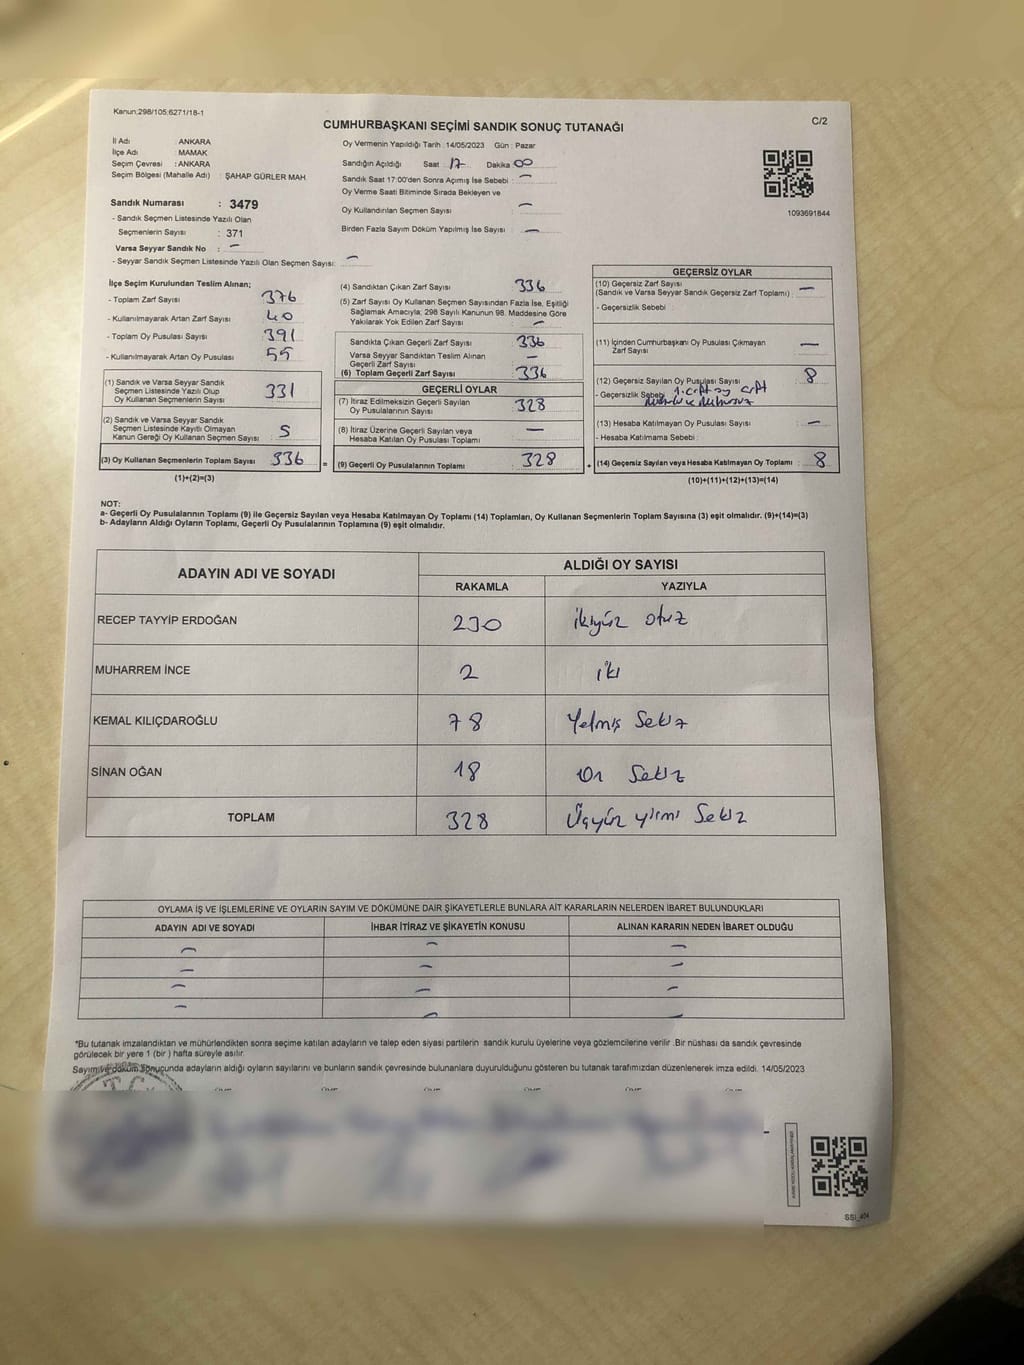 Kanun:298/105;6271/18-1
C/2
CUMHURBAŞKANI SEÇİMİ SANDIK SONUÇ TUTANAĞI
İl Adı : ANKARA
İlçe Adı : MAMAK
Seçim Çevresi : ANKARA
Seçim Bölgesi (Mahalle Adı) : ŞAHAP GÜRLER MAH.
Sandık Numarası : 3479
- Sandık Seçmen Listesinde Yazılı Olan
Seçmenlerin Sayısı : 371
Varsa Seyyar Sandık No : -
- Seyyar Sandık Seçmen Listesinde Yazılı Olan Seçmen Sayısı: -
Oy Vermenin Yapıldığı Tarih :14/05/2023 Gün : Pazar
Sandığın Açıldığı Saat : 17 Dakika 00
Sandık Saat 17:00'den Sonra Açımış İse Sebebi : -
Oy Verme Saati Bitiminde Sırada Bekleyen ve
Oy Kullandırılan Seçmen Sayısı : -
Birden Fazla Sayım Döküm Yapılmış İse Sayısı : -
1093691844
İlçe Seçim Kurulundan Teslim Alınan;
- Toplam Zarf Sayısı : 376
- Kullanılmayarak Artan Zarf Sayısı : 40
- Toplam Oy Pusulası Sayısı : 391
- Kullanılmayarak Artan Oy Pusulası : 55
(1) Sandık ve Varsa Seyyar Sandık
Seçmen Listesinde Yazılı Olup
Oy Kullanan Seçmenlerin Sayısı : 331
(2) Sandık ve Varsa Seyyar Sandık
Seçmen Listesinde Kayıtlı Olmayan
Kanun Gereği Oy Kullanan Seçmen Sayısı : 5
(3) Oy Kullanan Seçmenlerin Toplam Sayısı : 336
(1)+(2)=(3)
(4) Sandıktan Çıkan Zarf Sayısı : 336
(5) Zarf Sayısı Oy Kullanan Seçmen Sayısından Fazla İse, Eşitliği
Sağlamak Amacıyla; 298 Sayılı Kanunun 98. Maddesine Göre
Yakılarak Yok Edilen Zarf Sayısı : -
Sandıkta Çıkan Geçerli Zarf Sayısı : 336
Varsa Seyyar Sandıktan Teslim Alınan
Geçerli Zarf Sayısı : -
(6) Toplam Geçerli Zarf Sayısı : 336
GEÇERLİ OYLAR
(7) İtiraz Edilmeksizin Geçerli Sayılan
Oy Pusulalarının Sayısı : 328
(8) İtiraz Üzerine Geçerli Sayılan veya
Hesaba Katılan Oy Pusulası Toplamı : -
= (9) Geçerli Oy Pusulalarının Toplamı : 328
GEÇERSİZ OYLAR
(10) Geçersiz Zarf Sayısı
(Sandık ve Varsa Seyyar Sandık Geçersiz Zarf Toplamı) : -
- Geçersizlik Sebebi :
(11) İçinden Cumhurbaşkanı Oy Pusulası Çıkmayan
Zarf Sayısı : -
(12) Geçersiz Sayılan Oy Pusulası Sayısı : 8
- Geçersizlik Sebebi
(13) Hesaba Katılmayan Oy Pusulası Sayısı : -
- Hesaba Katılmama Sebebi :
+ (14) Geçersiz Sayılan veya Hesaba Katılmayan Oy Toplamı : 8
(10)+(11)+(12)+(13)=(14)
NOT:
a- Geçerli Oy Pusulalarının Toplamı (9) ile Geçersiz Sayılan veya Hesaba Katılmayan Oy Toplamı (14) Toplamları, Oy Kullanan Seçmenlerin Toplam Sayısına (3) eşit olmalıdır. (9)+(14)=(3)
b- Adayların Aldığı Oyların Toplamı, Geçerli Oy Pusulalarının Toplamına (9) eşit olmalıdır.
ADAYIN ADI VE SOYADI
ALDIĞI OY SAYISI
RAKAMLA YAZIYLA
RECEP TAYYİP ERDOĞAN 230 ikiyüz otuz
MUHARREM İNCE 2 iki
KEMAL KILIÇDAROĞLU 78 Yetmiş Sekiz
SİNAN OĞAN 18 On Sekiz
TOPLAM 328 Üçyüz yirmi Sekiz
OYLAMA İŞ VE İŞLEMLERİNE VE OYLARIN SAYIM VE DÖKÜMÜNE DAİR ŞİKAYETLERLE BUNLARA AİT KARARLARIN NELERDEN İBARET BULUNDUKLARI
ADAYIN ADI VE SOYADI İHBAR İTİRAZ VE ŞİKAYETİN KONUSU ALINAN KARARIN NEDEN İBARET OLDUĞU
- - -
- - -
- - -
- - -
*Bu tutanak imzalandıktan ve mühürlendikten sonra seçime katılan adayların ve talep eden siyasi partilerin sandık kurulu üyelerine veya gözlemcilerine verilir .Bir nüshası da sandık çevresinde
görülecek bir yere 1 (bir ) hafta süreyle asılır.
Sayım ve döküm sonucunda adayların aldığı oyların sayılarını ve bunların sandık çevresinde bulunanlara duyurulduğunu gösteren bu tutanak tarafımızdan düzenlenerek imza edildi. 14/05/2023
T.C.
SSİ_404